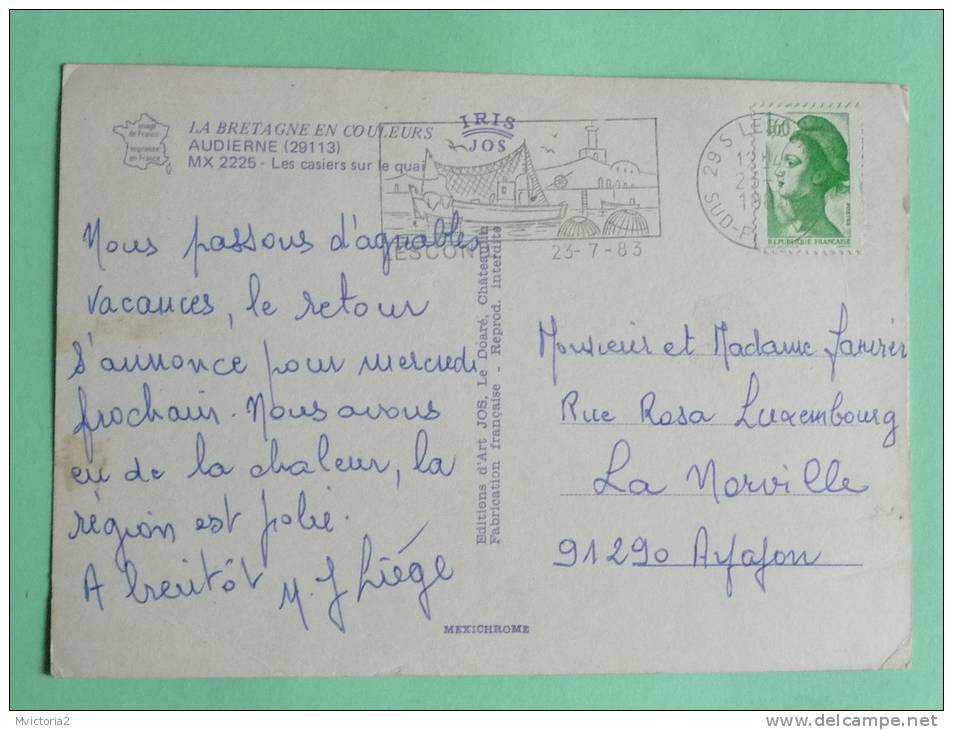 Image
de France
Imprimée
en France
LA BRETAGNE EN COULEURS
AUDIERNE (29113)
MX 2225 - Les casiers sur le quai
IRIS
JOS
LESCONIL 23-7-83
29 S LE
SUD-F
1,60
POSTES
REPUBLIQUE FRANÇAISE
Nous passons d'agréables
vacances, le retour
s'annonce pour mercredi
prochain. Nous avons
eu de la chaleur, la
région est jolie.
A bientôt M. J Liégé
Editions d'Art JOS, Le Doaré, Châteaulin
Fabrication française - Reprod. interdite
Monsieur et Madame Janvier
Rue Rosa Luxembourg
La Norville
91290 Arpajon
MEXICHROME
Mvictoria2
www.delcampe.net